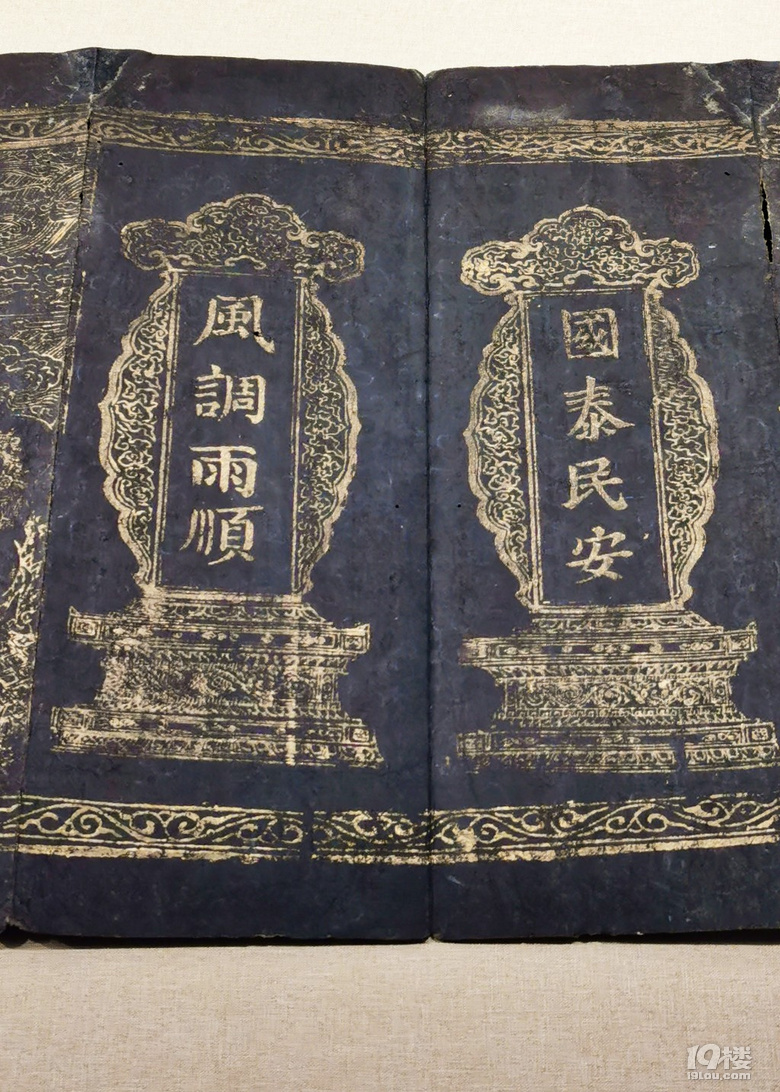 國泰民安
風調雨順
19楼
19lou.com